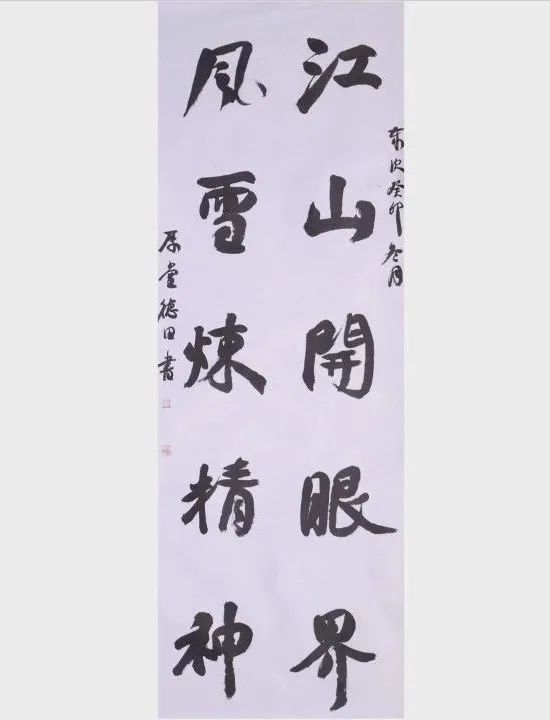 歲次癸卯冬月
江山開眼界
風雪煉精神
堂德田書